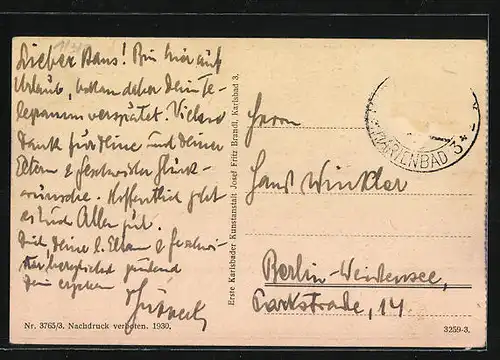 Lieber Hans! Bin hier auf
Urlaub, bekam daher Dein Te-
legramm verspätet. Vielen
Dank für Deine und Deiner
Eltern & Geschwister Glück-
wünsche. Hoffentlich geht
es Euch Allen gut.
Dich Deine l. Eltern & Geschwi-
ster herzlichst grüßend
Dein
Nr. 3765/3. Nachdruck verboten. 1930.
Erste Karlsbader Kunstanstalt Josef Fritz Brandl, Karlsbad 3.
MARIENBAD 3
Herrn
Hans Winkler
Berlin-Weißensee,
Parkstraße, 14
3259-3.